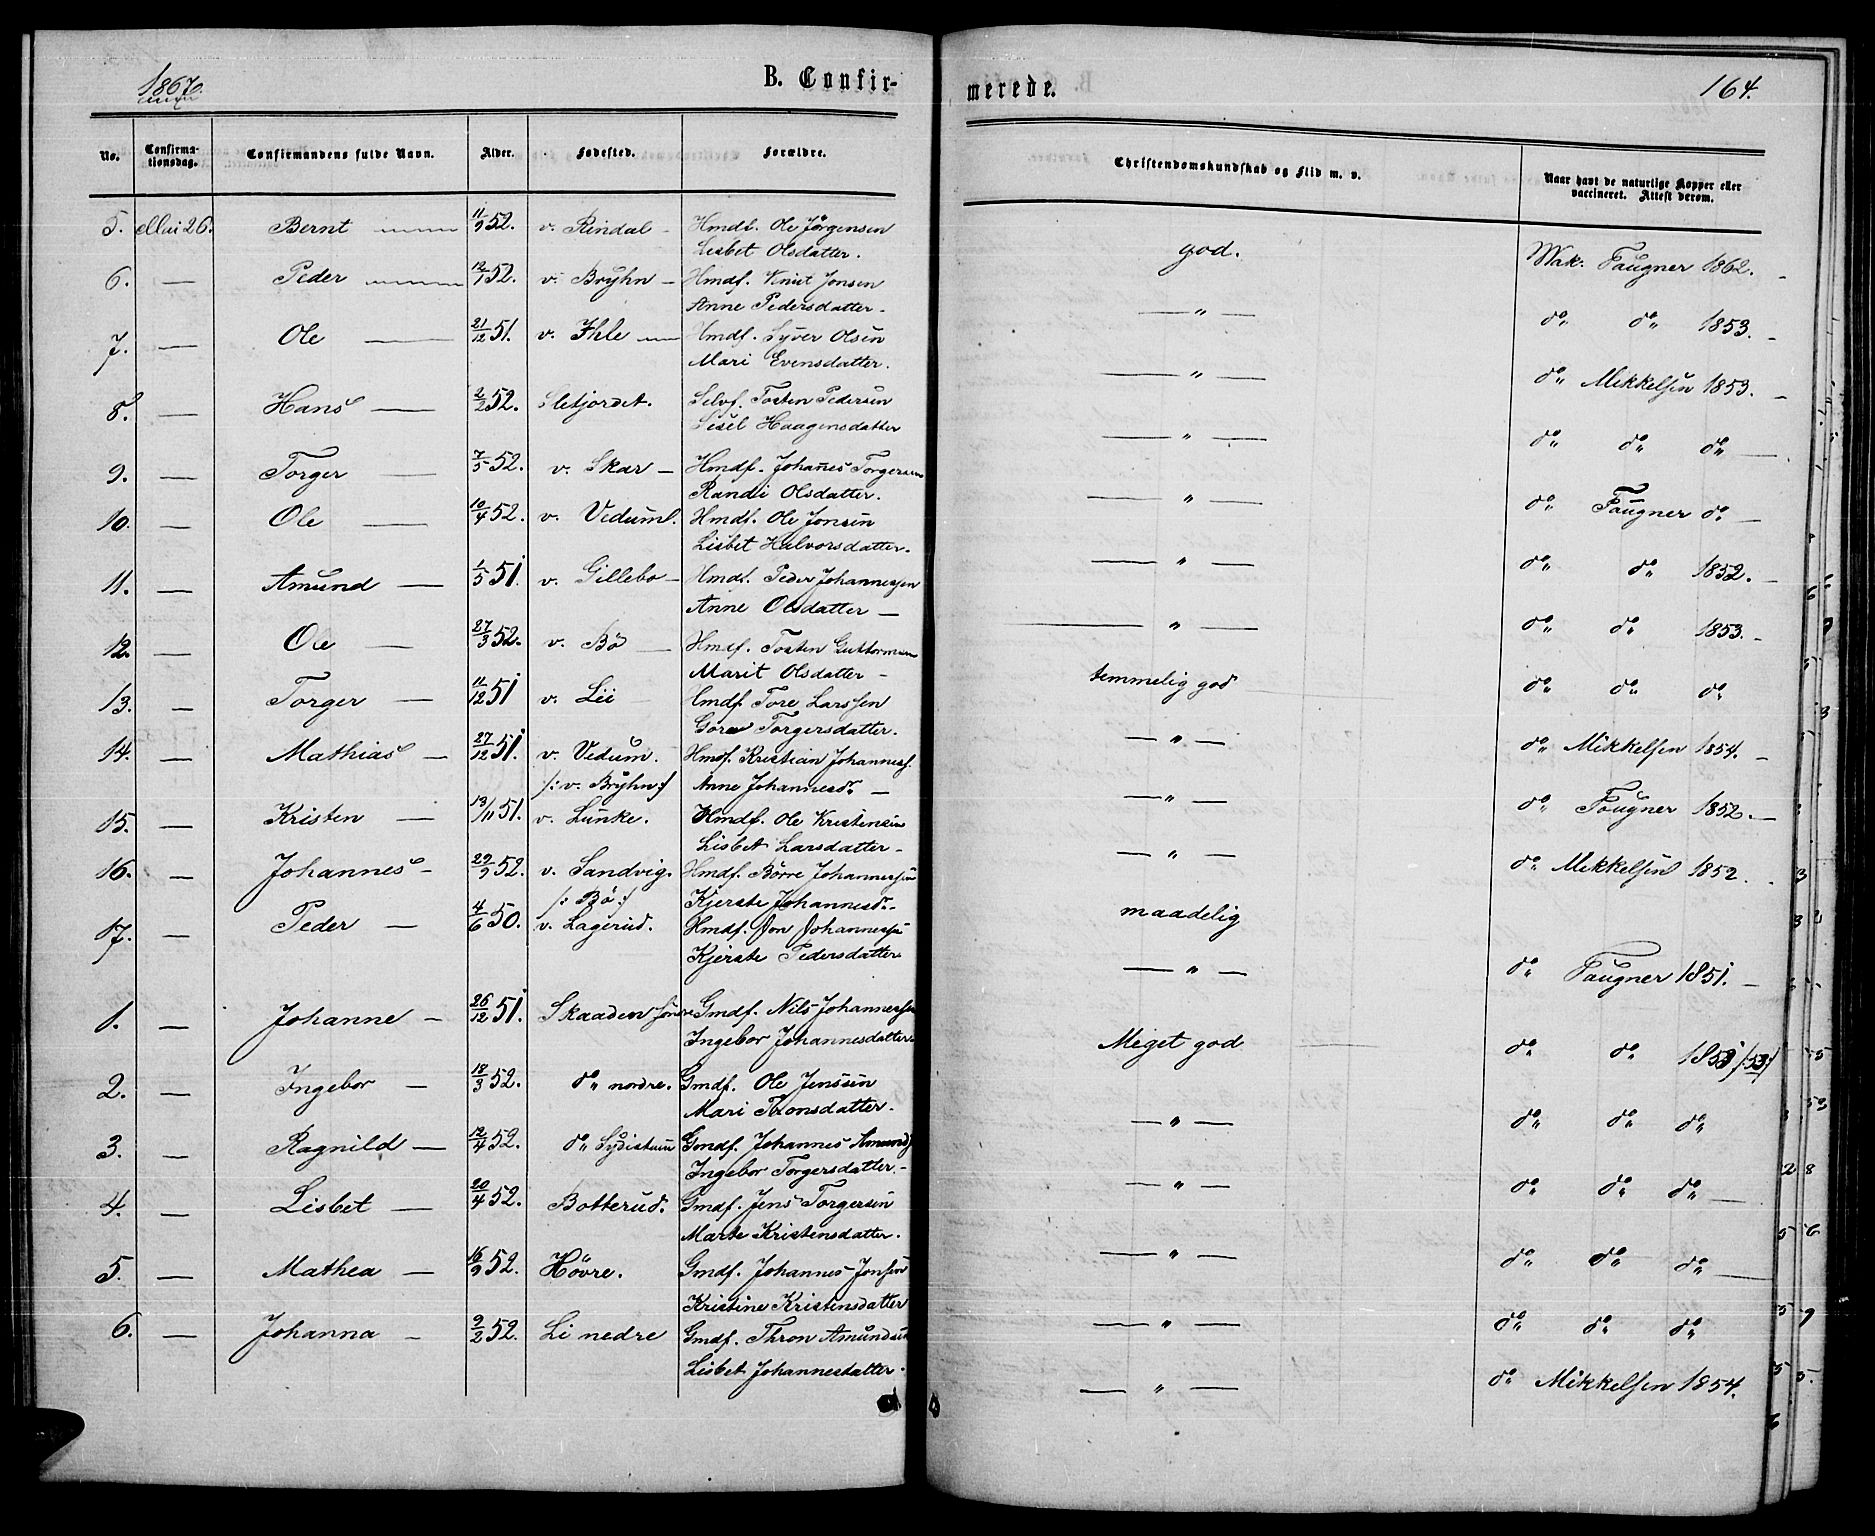 1867.
B. Confir-
merede.
164.
No. Confirma-tionsdag. Confirmandens fulde Navn. Alder. Fødested. Forældre. Christendomskundskab og Flid m. v. Naar havt de naturlige Kopper eller vaccineret. Attest derom.
5. Mai 26. Bernt 11/9 52. v. Rindal - Hmdf. Ole Jörgensen
Lisbet Olsdatter. god. Wak. Faugner 1862.
6. — Peder 12/1 52. v. Bryhn - Hmdf. Knut Jonsen
Anne Pedersdatter - — " — do do 1853.
7. — Ole — 21/12 51. v. Ihle — Hmdf. Syver Olsen
Mari Evensdatter. — " — do Mikkelsen 1853.
8. — Hans — 2/2 52. Sletjordet. Selvf. Tosten Pedersen
Sisel Haagensdatter — " — do do do —
9. — Torger — 7/5 52. v. Skar - Hmdf. Johanes Torgersen
Randi Olsdatter. — " — do Faugner do —
10. — Ole — 10/4 52. v. Veduml. Hmdf. Ole Jonsen
Lisbet Halvorsdatter. — " — do do 1852. —
11. — Amund — 1/5 51. v. Gillebo - Hmdf. Peder Johannessen
Anne Olsdatter — — " — do do 1853. -
12. — Ole — 27/3 52. v. Bö — Hmdf. Tosten Guttormsen
Marit Olsdatter - temmelig god do do do
13. — Torger — 11/12 51 v. Lii Hmdf. Tore Larssen
Goro Torgersdatter. — " — do Mikkelsen 1854. -
14. — Mathias — 27/12 51. v. Vedum. Hmdf. Kristian Johannesf.
/: v. Bryhn :/ Anne Johannesdr — — " — do Faugner 1852. —
15. — Kristen — 13/11 51. v. Lunke. Hmdf. Ole Kristensen
Lisbet Larsdatter - — " — do Mikkelsen 1852.
16. — Johannes - 29/9 52. v. Sandvig. Hmdf. Börre Johannessen
/: Bö :/ Kjerste Johannesdr - maadelig
17. — Peder — 4/6 50. v. Lagerud. Hmdf. Jon Johannessen
Kjerste Pedersdatter — " — do Faugner 1851. —
1. — Johanne — 26/12 51. Skaaden söndre Gmdf. Nils Johannessen
Ingebor Johannesdatter Meget god do do 1853 /:53:/
2. — Ingebor — 18/3 52. do nordre. Gmdf. Ole Jenssen
Mari Thronsdatter. — " — do do do
3. — Ragnild — 12/4 52. do Sydistuen Gmdf. Johannes Amunds
Ingebor Torgersdatter. - — " — do do do —
4. — Lisbet — 20/4 52. Botterud. Gmdf. Jens Torgersen
Marte Kristensdatter. — " — do do do —
5. — Mathea — 16/9 52. Hövre. Gmdf. Johannes Jonsen
Kristine Kristensdatter — " — do do do
6. — Johanna - 9/2 52. Li nedre Gmdf. Thron Amundsen
Lisbet Johannesdatter. — " — do Mikkelsen 1854.